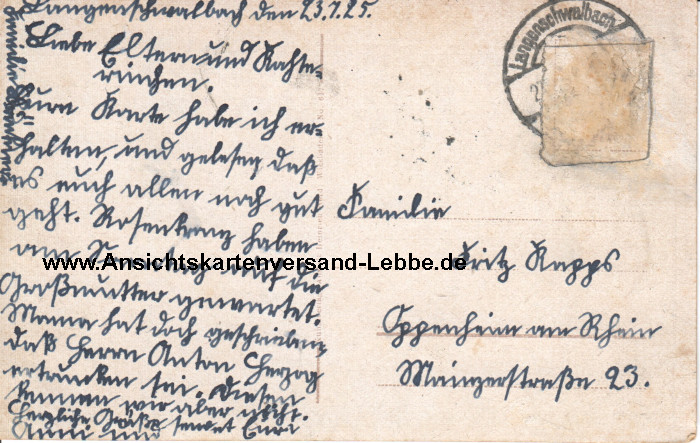 Langenschwalbach den 23.7.25.
Liebe Eltern und Kathe-
rinchen.
Eure Karte habe ich er-
halten, und gelesen, daß
es euch allen noch gut
geht. Rosenkranz haben
am Sonntag auf die
Großmutter gewartet.
Mama hat doch geschrieben,
daß Herrn Anton Herzog
ertrunken sei. Diesen
kennen wir aber nicht.
Herzliche Grüße sendet Euch
Anni und
Langenschwalbach
Familie
Fritz Kapps
Oppenheim am Rhein
Mainzerstraße 23.
www.Ansichtskartenversand-Lebbe.de